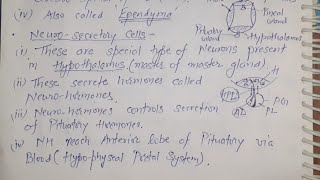 (iv) Also called Ependyma
Pineal
gland
Pituitary
gland
Hypothalamus
Neuro-secretory Cells-
(i) These are special type of Neurons present
in Hypothalamus (master of master gland).
(ii) These secrete hormones called
Neuro-hormones.
HPL
PGn
AL
PL
(iii) Neuro-hormones controls secretion
of Pituitary Hormones.
(iv) NH reach Anterior lobe of Pituitary via
Blood (Hypo-physeal Portal System).